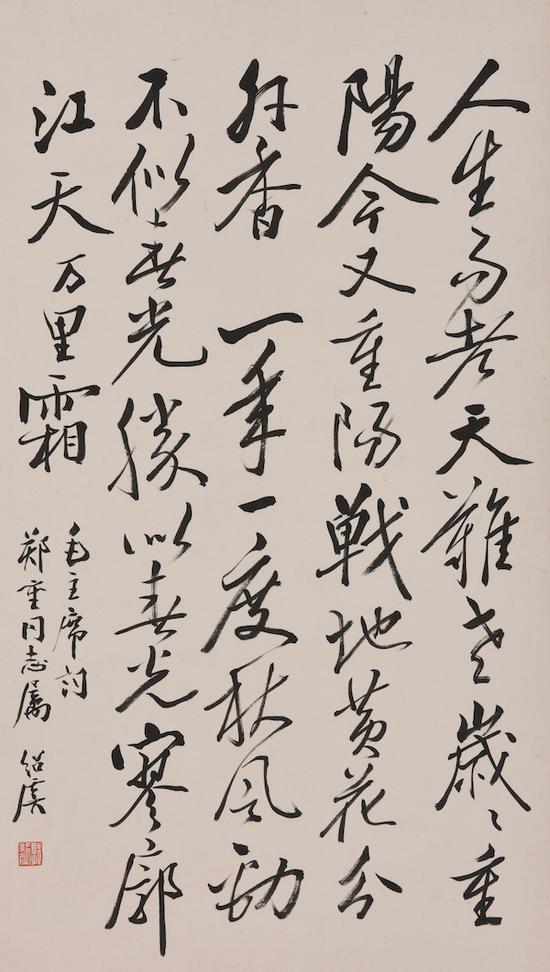 人生易老天難老歲々重
陽今又重陽戰地黄花分
外香 一年一度秋风勁
不似春光勝以春光寥廓
江天万里霜
毛主席詞
郑重同志属 绍虞